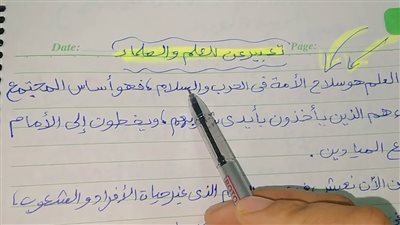 Date: تعبير عن العلم والعلماء Page:
العلم هو سلاح الأمة فى الحرب والسلام، فهو أساس المجتمع
هم الذين يأخذون بأيدى ويخطون إلى الأمام
الميادين.
الآن نعيش الذى غير حياة الأفراد والشعوب